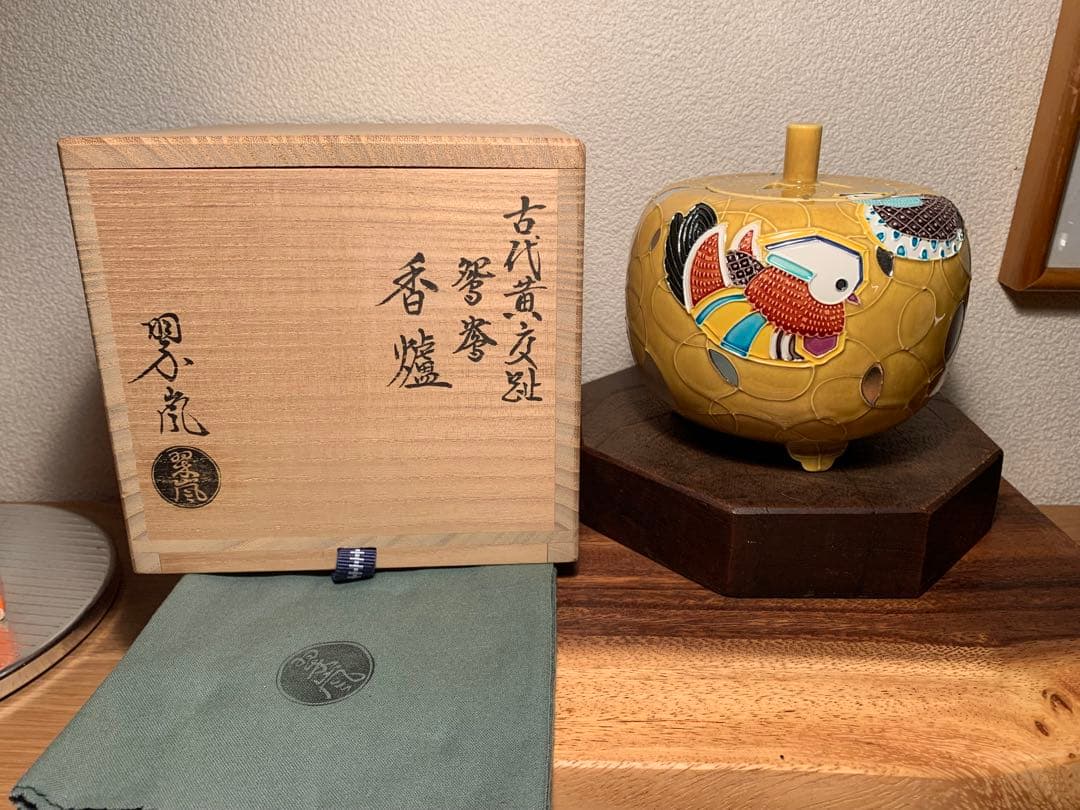 古代黄交趾
鴛鴦
香爐
翠嵐
翠嵐